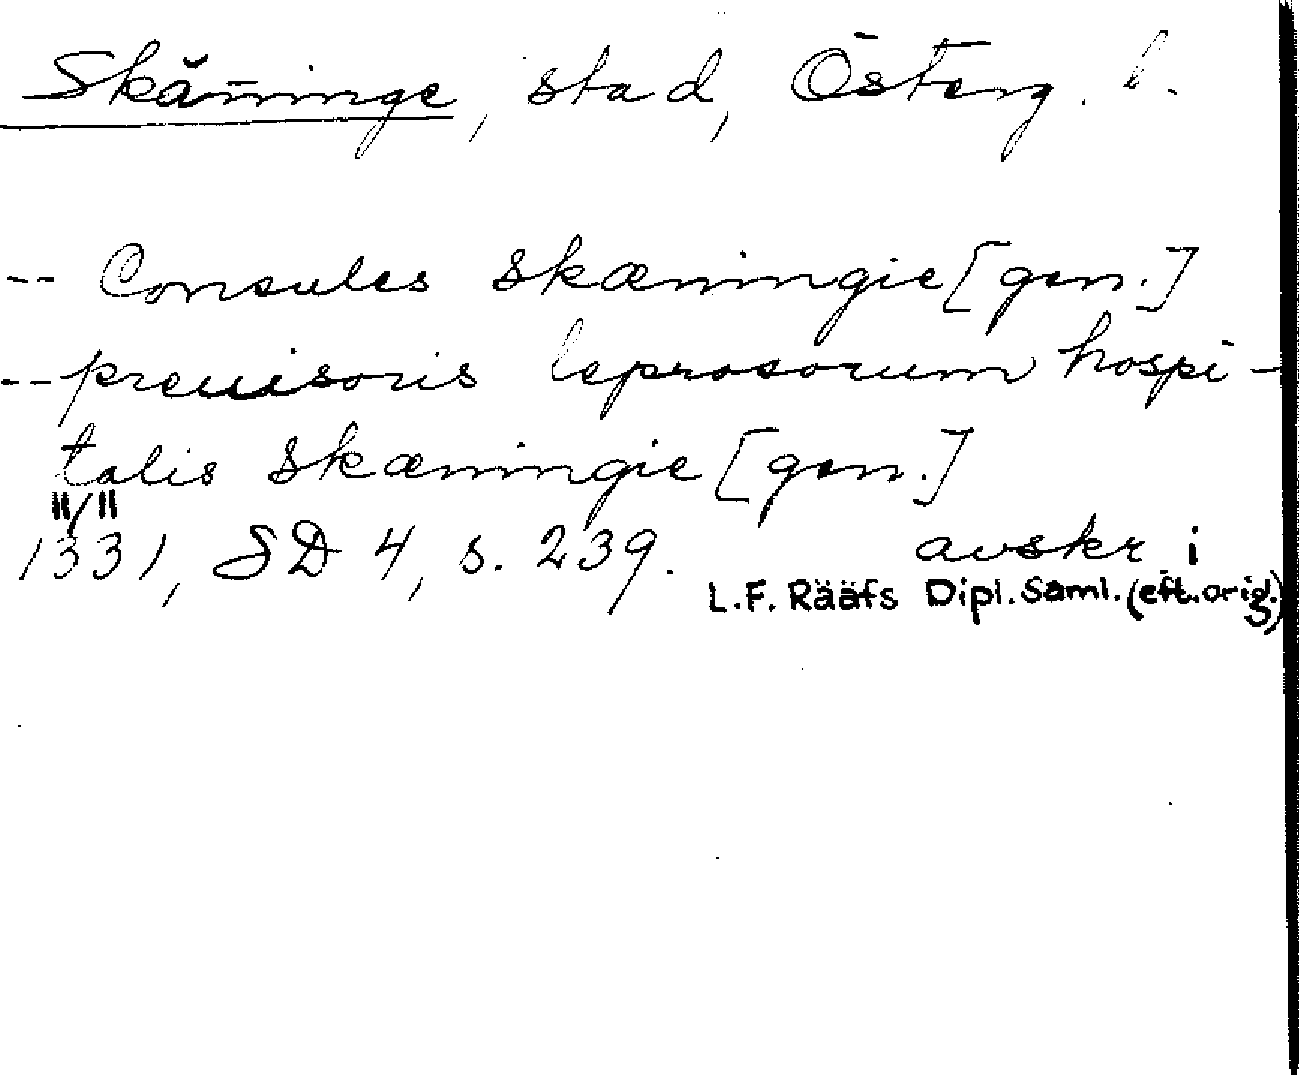 Skänninge, stad, Österg. l.
-- Consules skæningie [gen.]
-- preuisoris leprosorum hospi-
talis skæningie [gen.]
11/11
1331, SD 4, s. 239. avskr i
L.F. Rääfs Dipl. Saml. (eft. orig.)